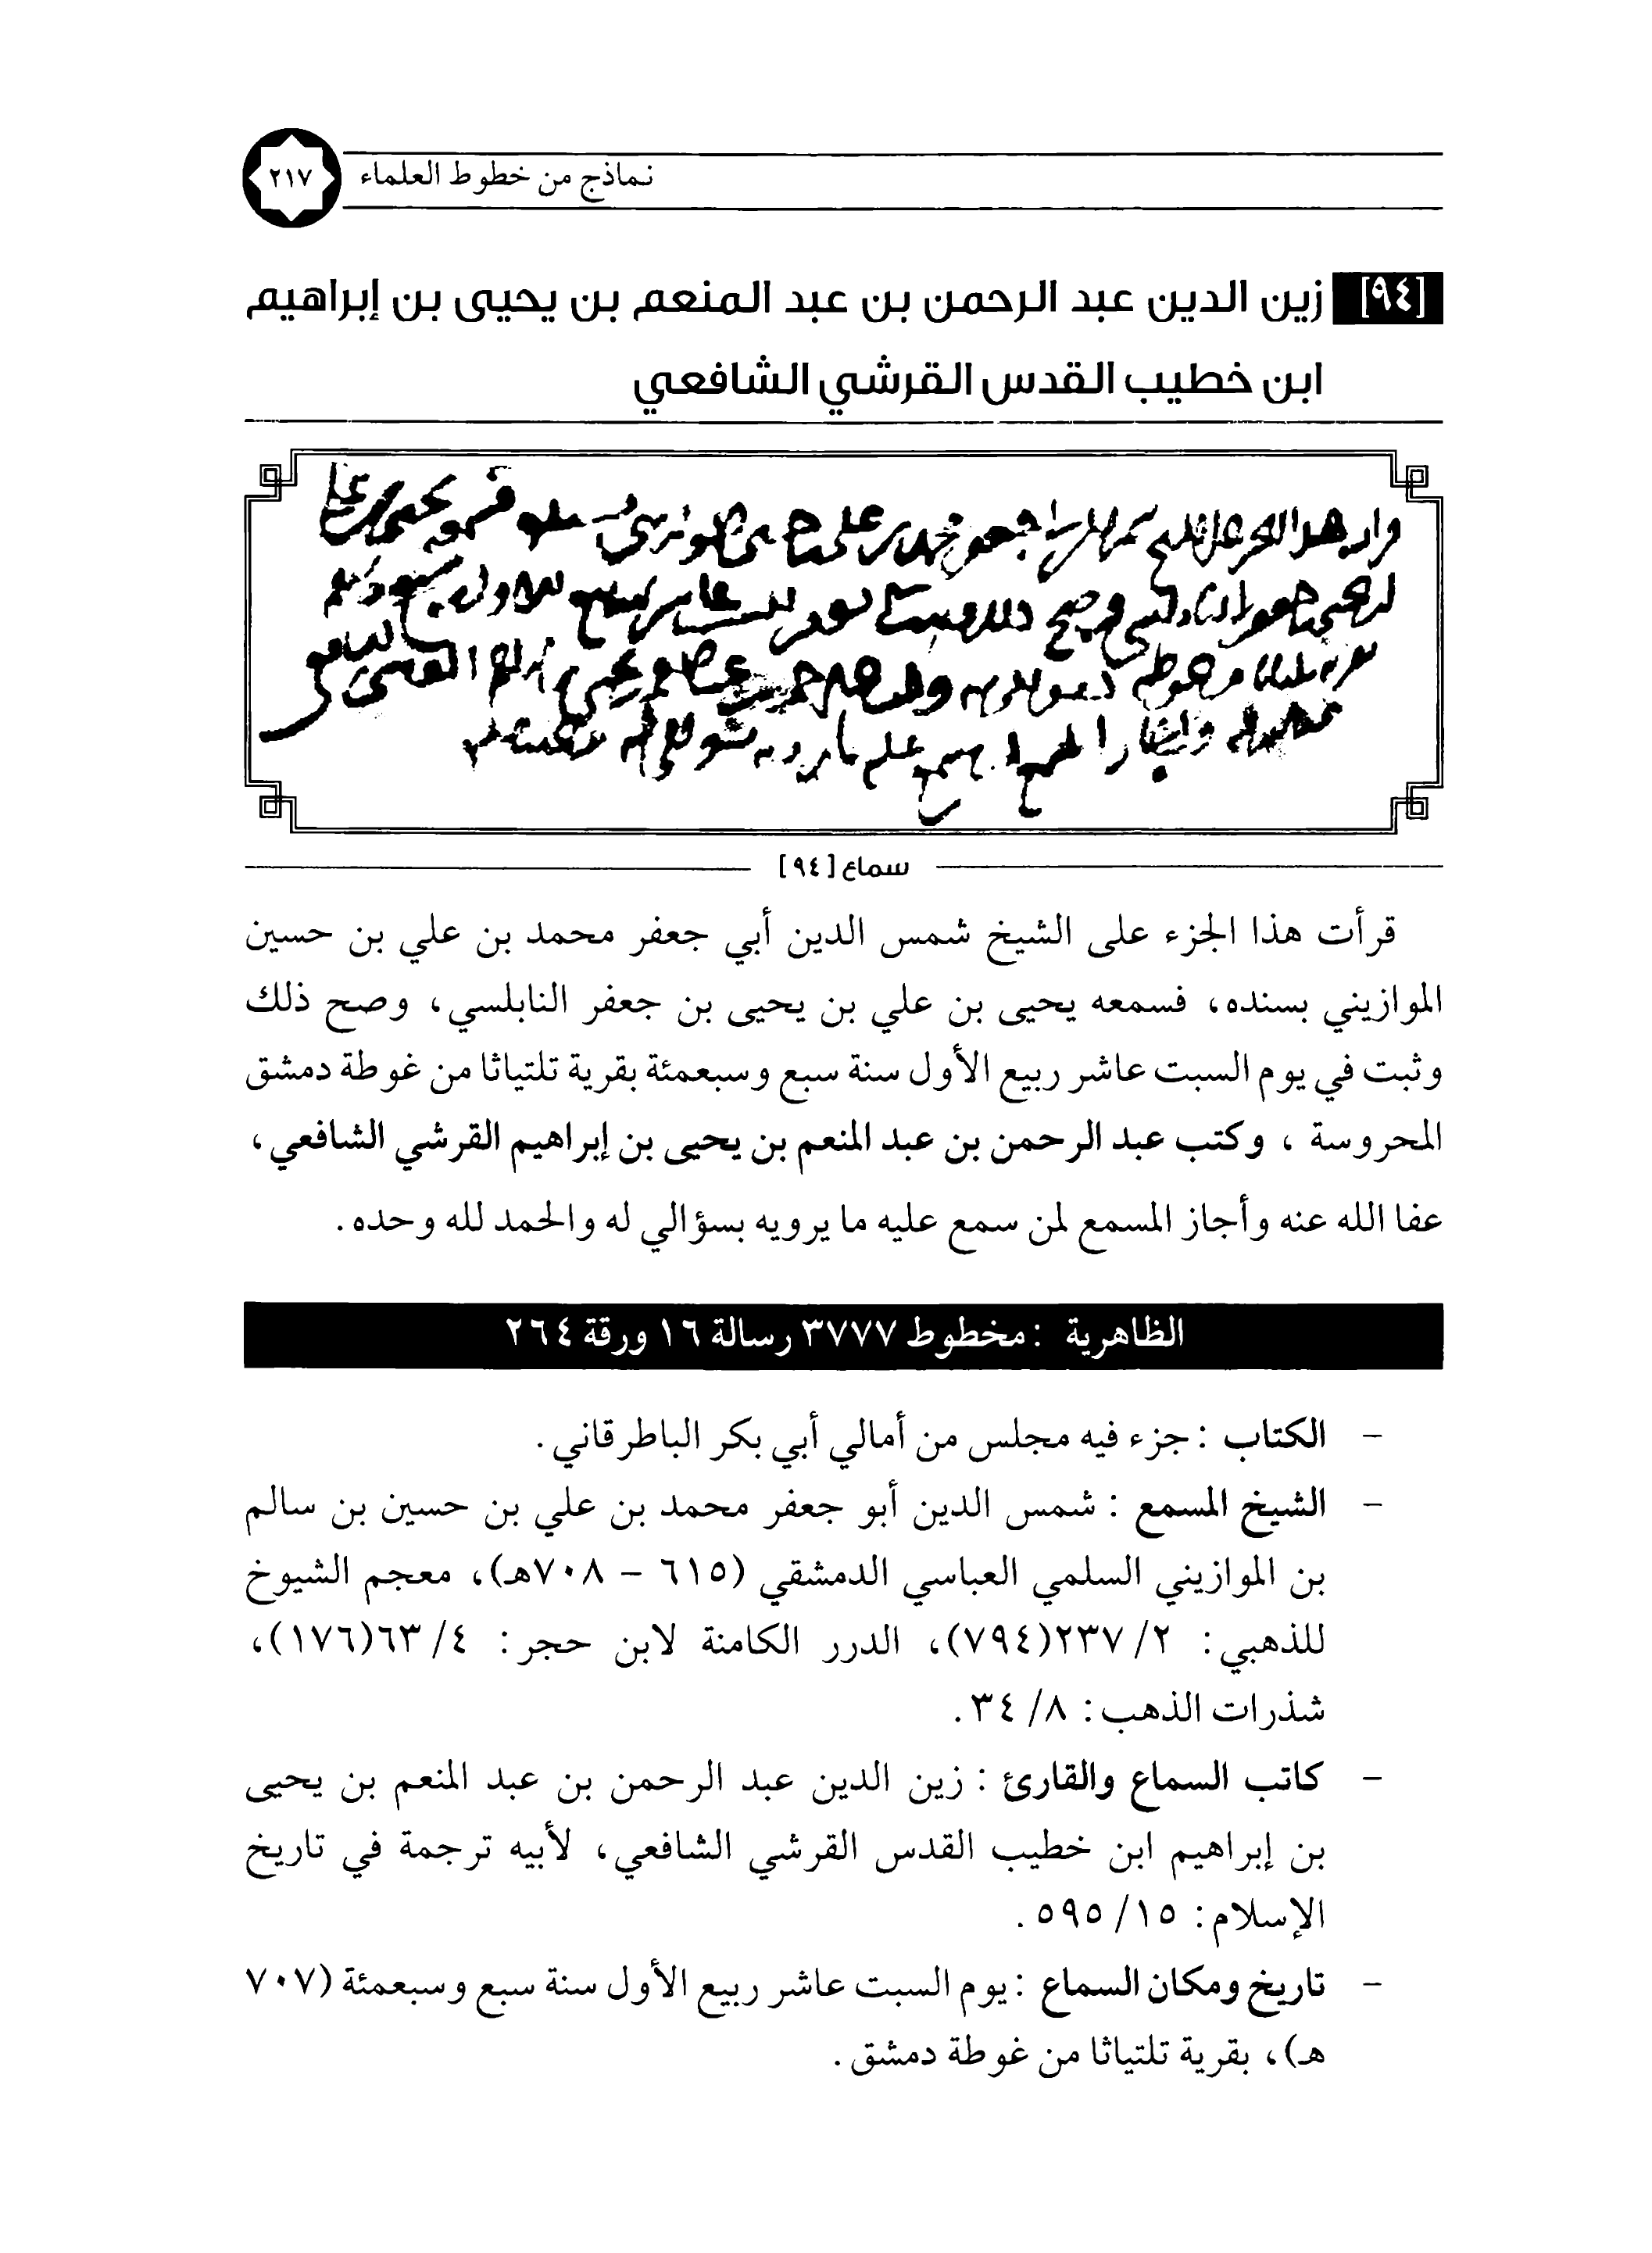 نماذج من خطوط العلماء ٢١٧
[٩٤] زين الدين عبد الرحمن بن عبد المنعم بن يحيى بن إبراهيم
ابن خطيب القدس القرشي الشافعي
سماع [٩٤]
قرأت هذا الجزء على الشيخ شمس الدين أبي جعفر محمد بن علي بن حسين
الموازيني بسنده، فسمعه يحيى بن علي بن يحيى بن جعفر النابلسي، وصح ذلك
وثبت في يوم السبت عاشر ربيع الأول سنة سبع وسبعمئة بقرية تلتياثا من غوطة دمشق
المحروسة ، وكتب عبد الرحمن بن عبد المنعم بن يحيى بن إبراهيم القرشي الشافعي،
عفا الله عنه وأجاز المسمع لمن سمع عليه ما يرويه بسؤالي له والحمد لله وحده.
الظاهرية : مخطوط ٣٧٧٧ رسالة ١٦ ورقة ٢٦٤
- الكتاب : جزء فيه مجلس من أمالي أبي بكر الباطرقاني.
- الشيخ المسمع : شمس الدين أبو جعفر محمد بن علي بن حسين بن سالم
بن الموازيني السلمي العباسي الدمشقي (٦١٥ - ٧٠٨هـ)، معجم الشيوخ
للذهبي: ٢/ ٢٣٧(٧٩٤)، الدرر الكامنة لابن حجر: ٤/ ٦٣(١٧٦)،
شذرات الذهب: ٨/ ٣٤.
- كاتب السماع والقارئ : زين الدين عبد الرحمن بن عبد المنعم بن يحيى
بن إبراهيم ابن خطيب القدس القرشي الشافعي، لأبيه ترجمة في تاريخ
الإسلام: ١٥/ ٥٩٥.
- تاريخ ومكان السماع : يوم السبت عاشر ربيع الأول سنة سبع وسبعمئة (٧٠٧
هـ)، بقرية تلتياثا من غوطة دمشق.